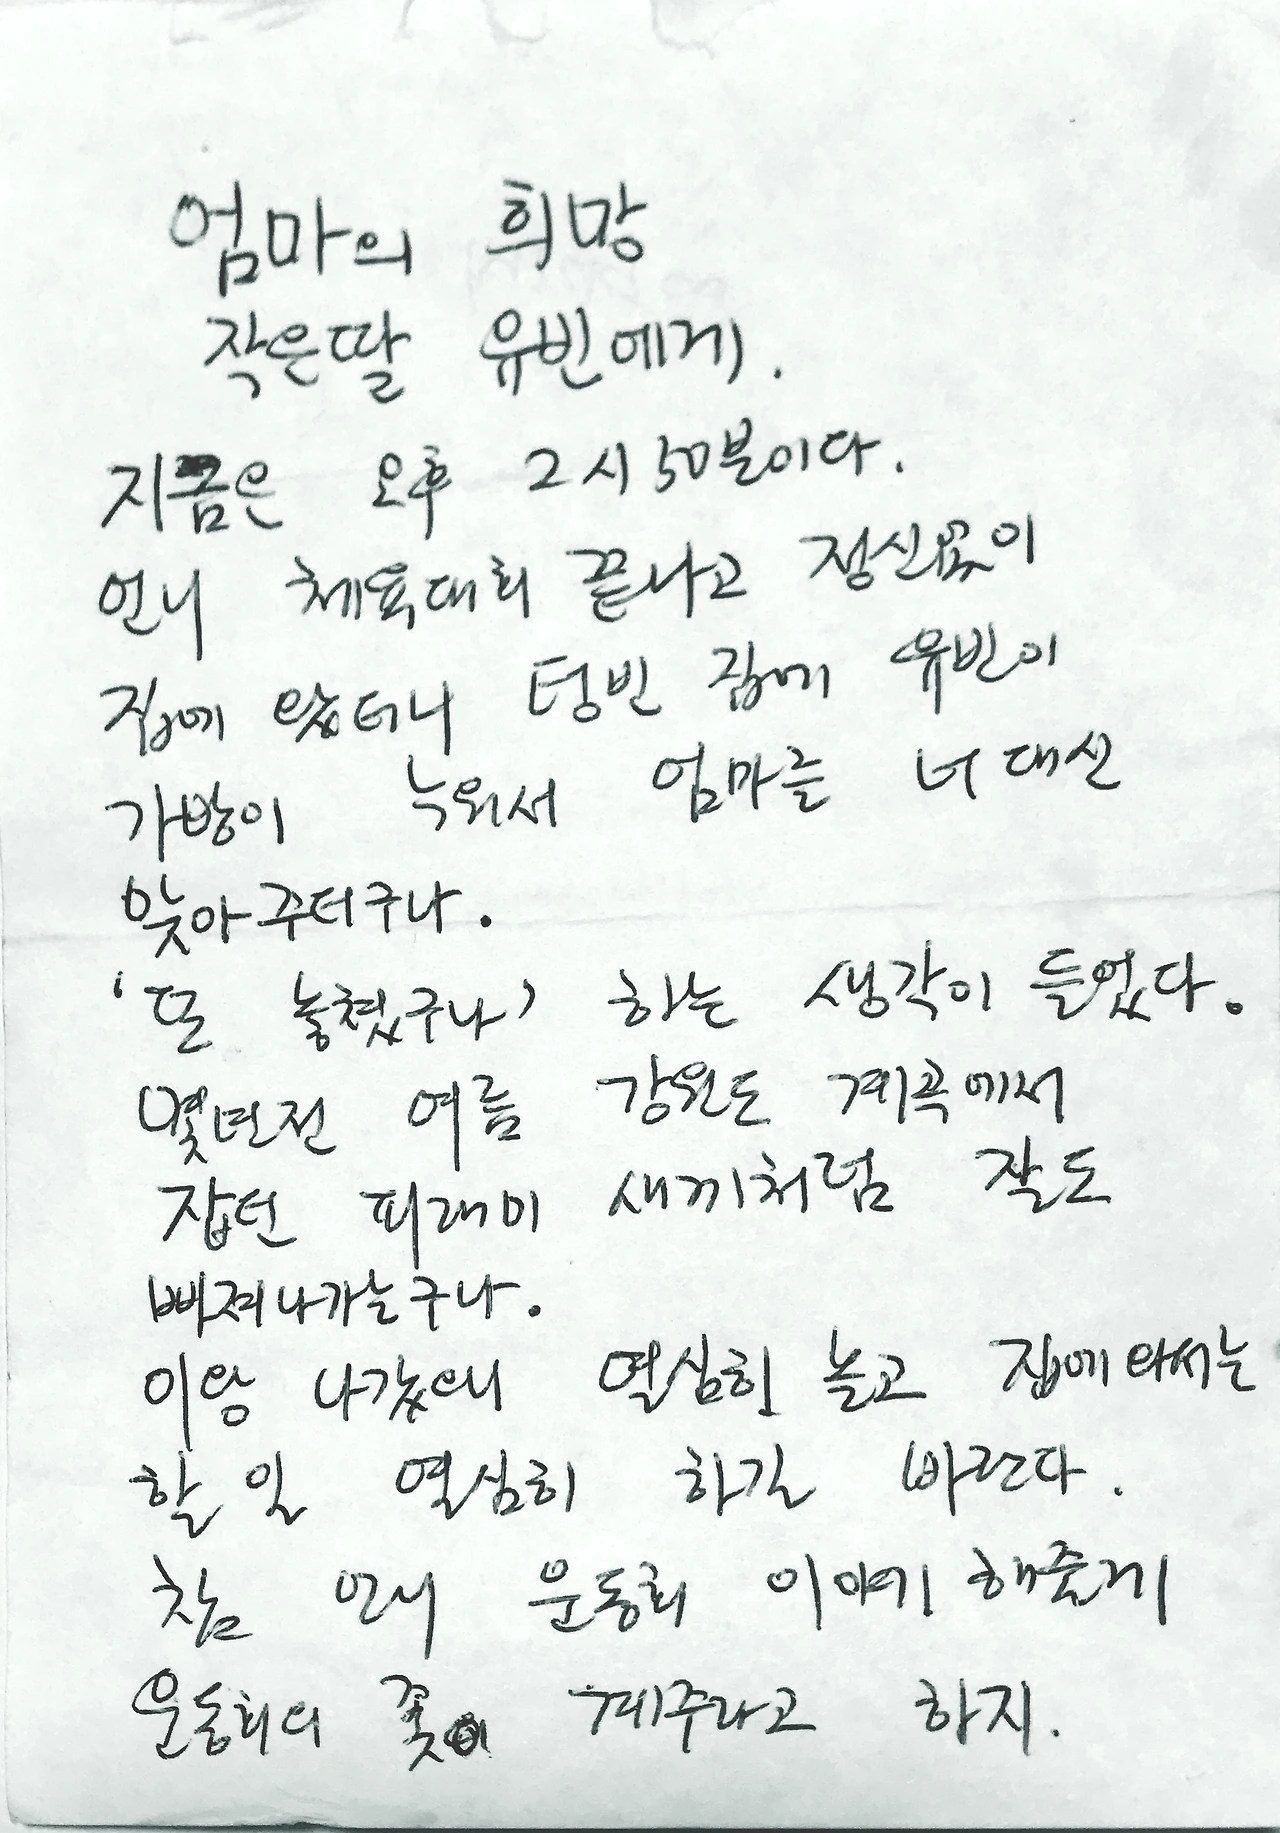 엄마의 희망
작은딸 유빈에게.
지금은 오후 2시 50분이다.
언니 체육대회 끝나고 정신없이
집에 왔더니 텅빈 집에 유빈이
가방이 누워서 엄마를 너 대신
맞아 주더구나.
'또 놓쳤구나' 하는 생각이 들었다.
몇년전 여름 강원도 계곡에서
잡던 피래미 새끼처럼 잘도
빠져나가는구나.
이왕 나갔으니 열심히 놀고 집에 와서는
할 일 열심히 하길 바란다.
참 언니 운동회 이야기 해줄게
운동회의 꽃이 계주라고 하지.